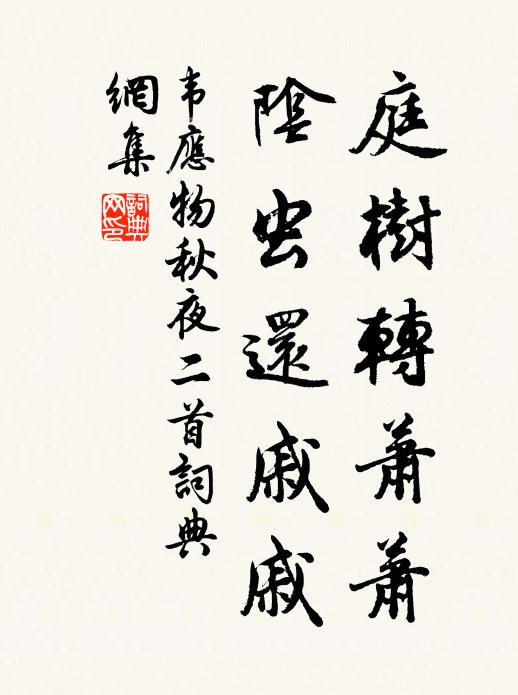 庭樹轉蕭蕭
陰虫還戚戚
韦應物秋夜二首詞典
網集
詞典网印